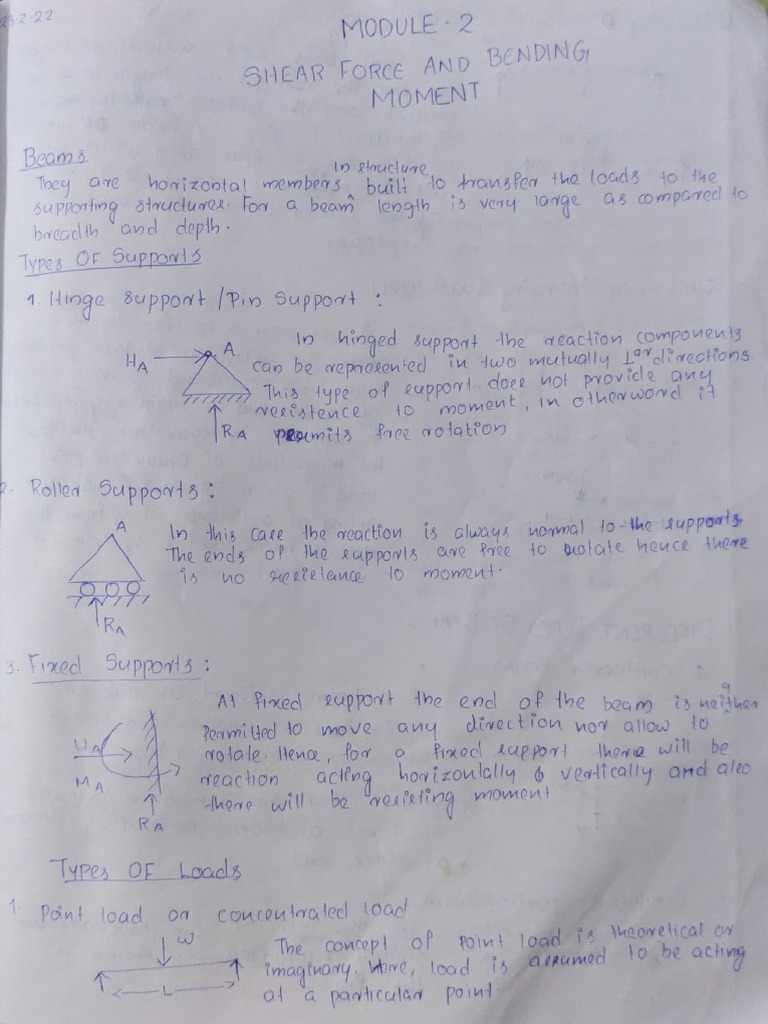 23-2-22
MODULE - 2
SHEAR FORCE AND BENDING
MOMENT
Beams
In structure
They are horizontal members built to transfer the loads to the
supporting structures. For a beam length is very large as compared to
breadth and depth.
Types OF Supports
1. Hinge support / Pin Support :
In hinged support the reaction components
HA A
can be represented in two mutually ⊥ar directions
This type of support does not provide any
resistence to moment, in otherword it
RA permits free rotation
2. Roller Supports :
A
In this case the reaction is always normal to the supports
The ends of the supports are free to rotate hence there
is no resistance to moment.
RA
3. Fixed Supports :
At fixed support the end of the beam is neither
Permitted to move any direction nor allow to
HA rotate. Hence, for a fixed support there will be
MA reaction acting horizontally & vertically and also
there will be resisting moment
RA
Types OF Loads
1. Point load or concentrated load
W
The concept of point load is theoretical or
imaginary. Here, load is assumed to be acting
L at a particular point.